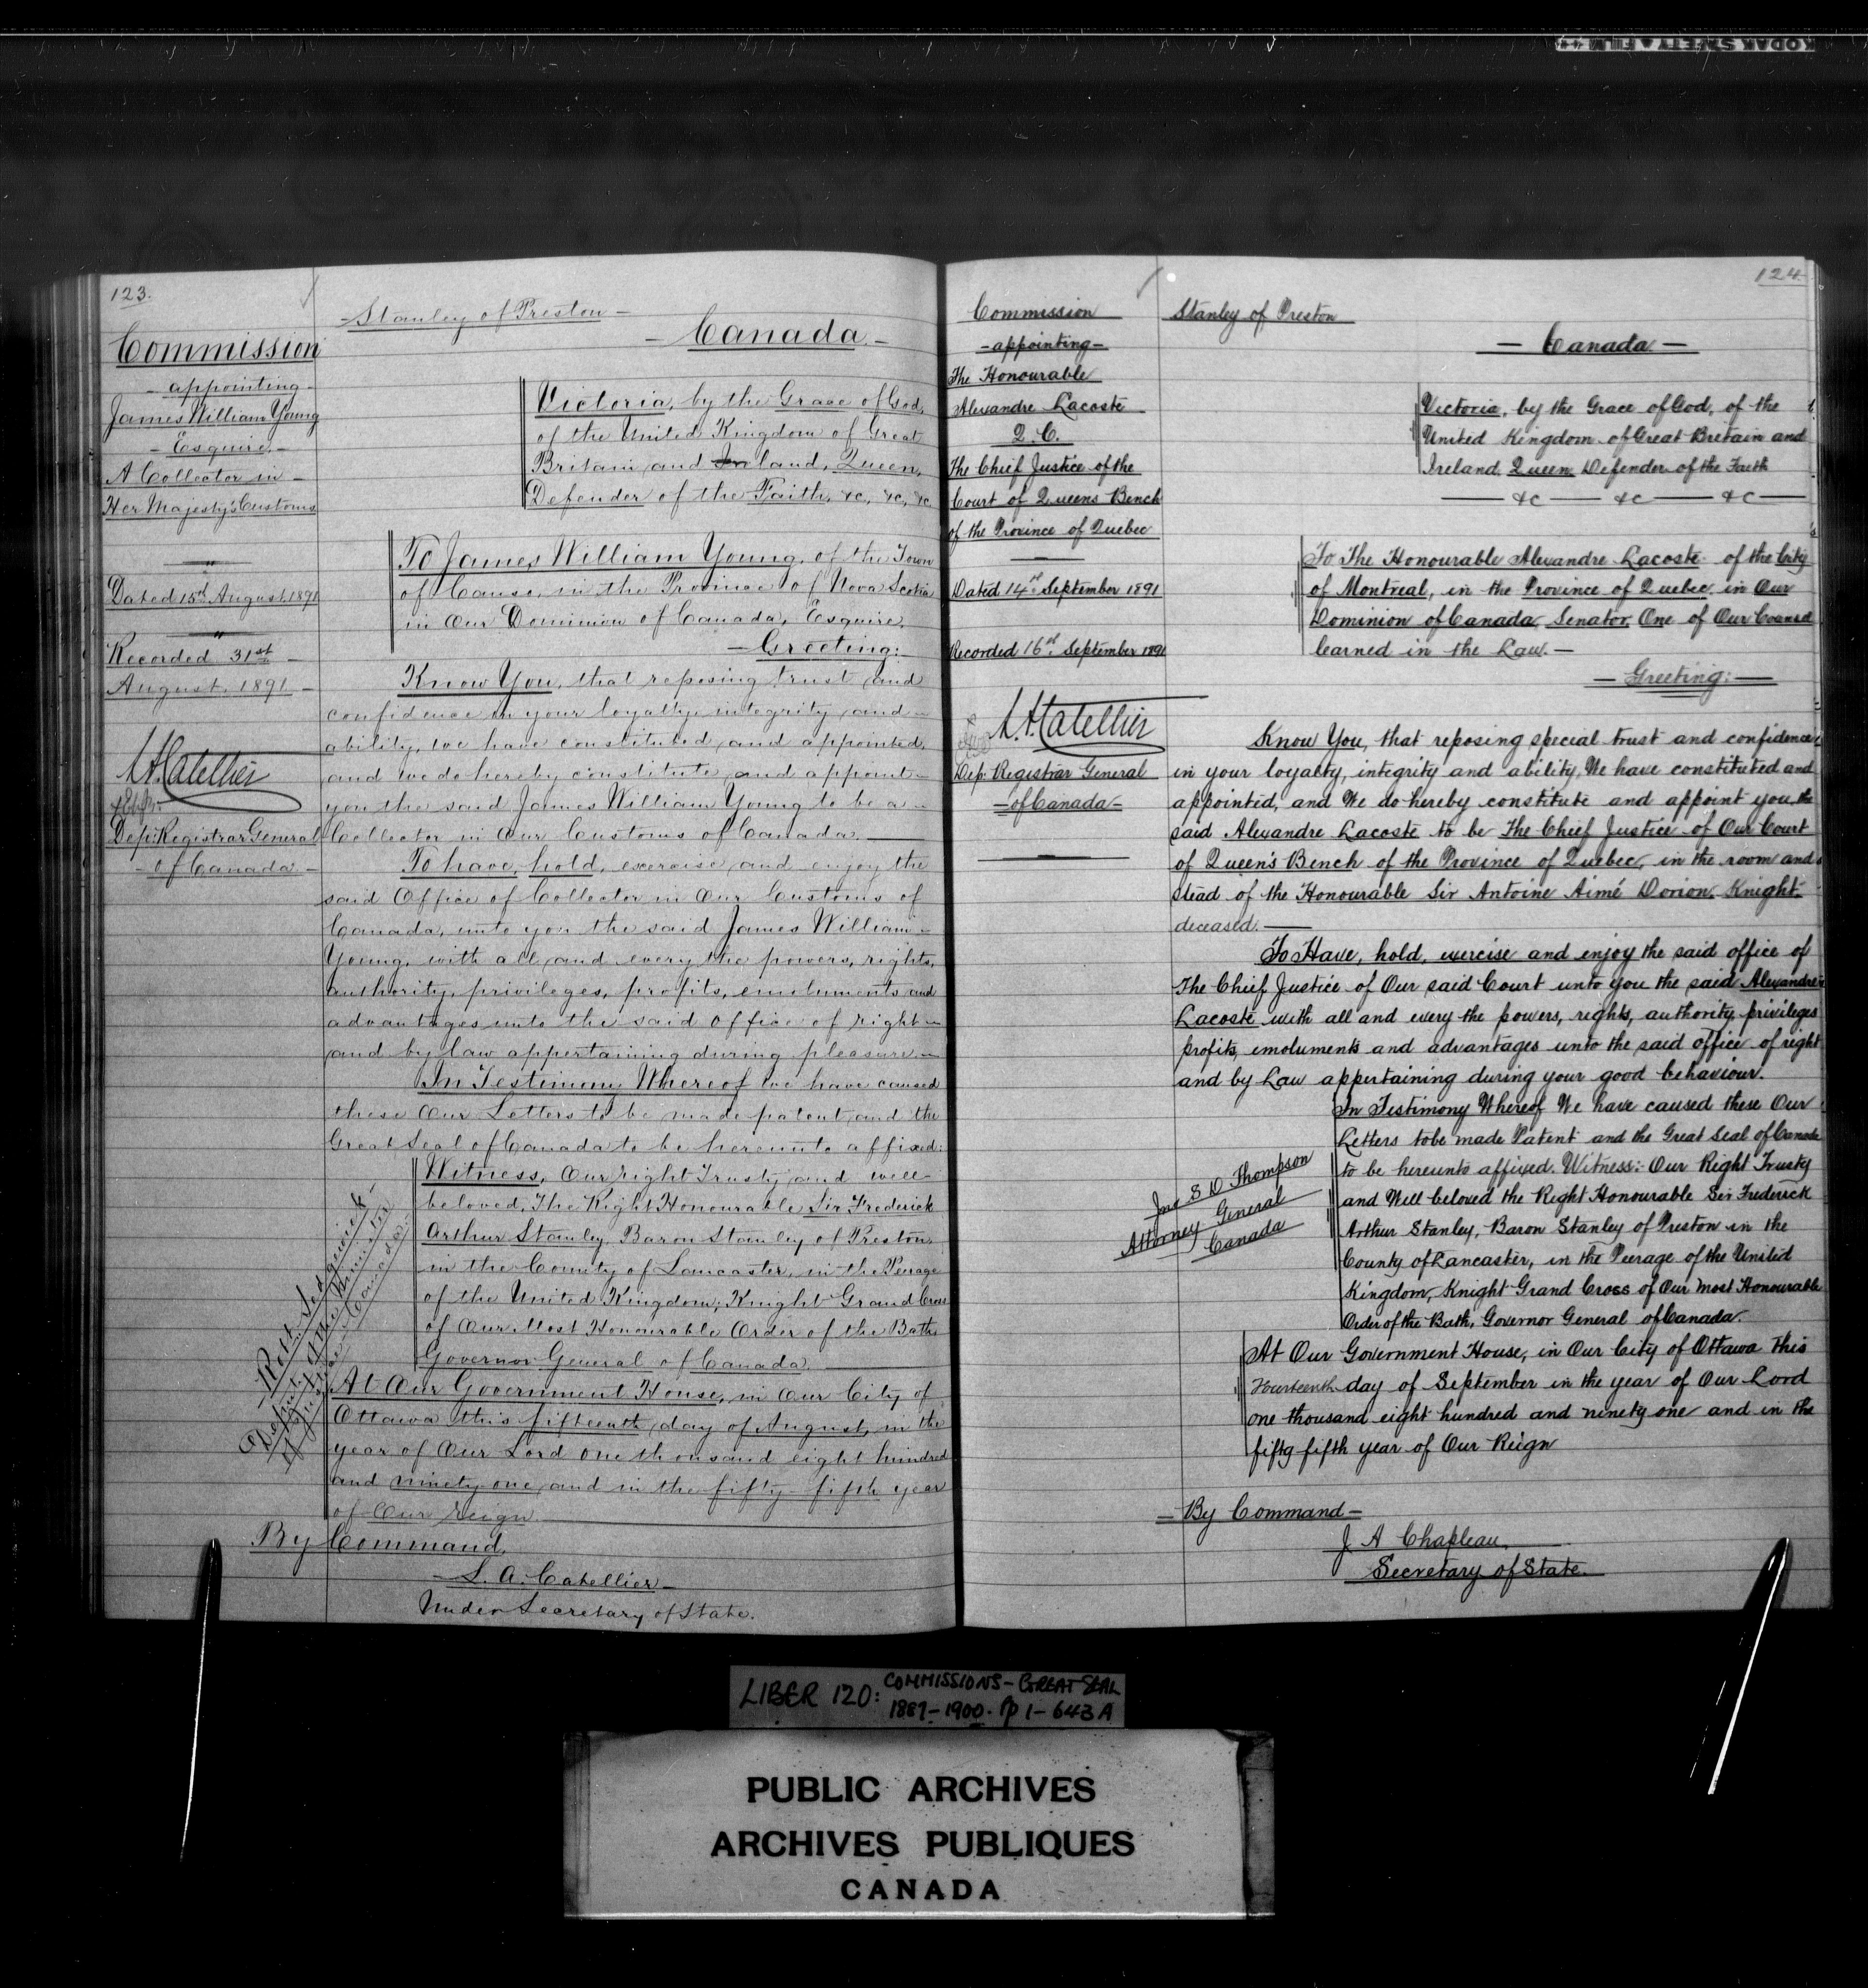 KODAK SAFETY FILM
123.
Commission
- appointing -
James William Young
- Esquire -
A Collector in -
Her Majesty's Customs
Dated 15th August 1891
Recorded 31st -
August. 1891 -
L.A. Catellier
Dep. Registrar General
- of Canada -
- Stanley of Preston -
- Canada -
Victoria, by the Grace of God,
of the United Kingdom of Great
Britain and Ireland, Queen,
Defender of the Faith, &c, &c, &c.
To James William Young, of the Town
of Canso, in the Province of Nova Scotia
in Our Dominion of Canada, Esquire.
- Greeting: -
Know You, that reposing trust and
confidence in your loyalty, integrity and -
ability, we have constituted and appointed,
and we do hereby constitute and appoint -
you the said James William Young to be a -
Collector in Our Customs of Canada.
To have, hold, exercise and enjoy the
said Office of Collector in Our Customs of
Canada, unto you the said James William -
Young, with all and every the powers, rights,
authority, privileges, profits, emoluments and
advantages unto the said office of right -
and by law appertaining during pleasure -
In Testimony Whereof We have caused
these Our Letters to be made patent and the
Great Seal of Canada to be hereunto affixed:
Witness, Our right Trusty and well-
beloved, The Right Honourable Sir Frederick
Arthur Stanley, Baron Stanley of Preston
in the County of Lancaster, in the Peerage
of the United Kingdom; Knight Grand Cross
of Our Most Honourable Order of the Bath,
Governor General of Canada.
Robt. Sedgewick -
Deputy of the Minister
of Justice Canada.
At Our Government House, in Our City of
Ottawa this fifteenth day of August, in the
year of Our Lord one thousand eight hundred
and ninety-one, and in the fifty-fifth year
of Our reign.
By Command,
- L. A. Catellier -
Under Secretary of State.
124
Commission
- appointing -
The Honourable
Alexandre Lacoste
Q.C.
The Chief Justice of the
Court of Queens Bench
of the Province of Quebec
Dated 14th September 1891
Recorded 16th September 1891
L.A. Catellier
Dep: Registrar General
- of Canada -
Stanley of Preston
- Canada -
Victoria, by the Grace of God, of the
United Kingdom of Great Britain and
Ireland, Queen, Defender of the Faith
&c &c &c
To The Honourable Alexandre Lacoste of the City
of Montreal, in the Province of Quebec, in Our
Dominion of Canada, Senator, One of Our Counsel
learned in the Law. -
- Greeting: -
Know You, that reposing special trust and confidence
in your loyalty, integrity and ability, We have constituted and
appointed, and We do hereby constitute and appoint you the
said Alexandre Lacoste to be The Chief Justice of Our Court
of Queen's Bench of the Province of Quebec, in the room and
stead of the Honourable Sir Antoine Aimé Dorion, Knight
deceased.
To Have, hold, exercise and enjoy the said office of
The Chief Justice of Our said Court unto you the said Alexandre
Lacoste with all and every the powers, rights, authority, privileges
profits, emoluments and advantages unto the said office of right
and by Law appertaining during your good behaviour.
In Testimony Whereof We have caused these Our
Letters to be made Patent and the Great Seal of Canada
to be hereunto affixed. Witness: Our Right Trusty
and Well beloved the Right Honourable Sir Frederick
Arthur Stanley, Baron Stanley of Preston in the
County of Lancaster, in the Peerage of the United
Kingdom, Knight Grand Cross of Our Most Honourable
Order of the Bath, Governor General of Canada.
Jno S D Thompson
Attorney General
Canada
At Our Government House, in Our City of Ottawa this
Fourteenth day of September in the year of Our Lord
one thousand eight hundred and ninety one and in the
fifty fifth year of Our Reign
- By Command -
J A Chapleau,
Secretary of State.
LIBER 120: COMMISSIONS - GREAT SEAL
1887-1900. pp 1-643A
PUBLIC ARCHIVES
ARCHIVES PUBLIQUES
CANADA